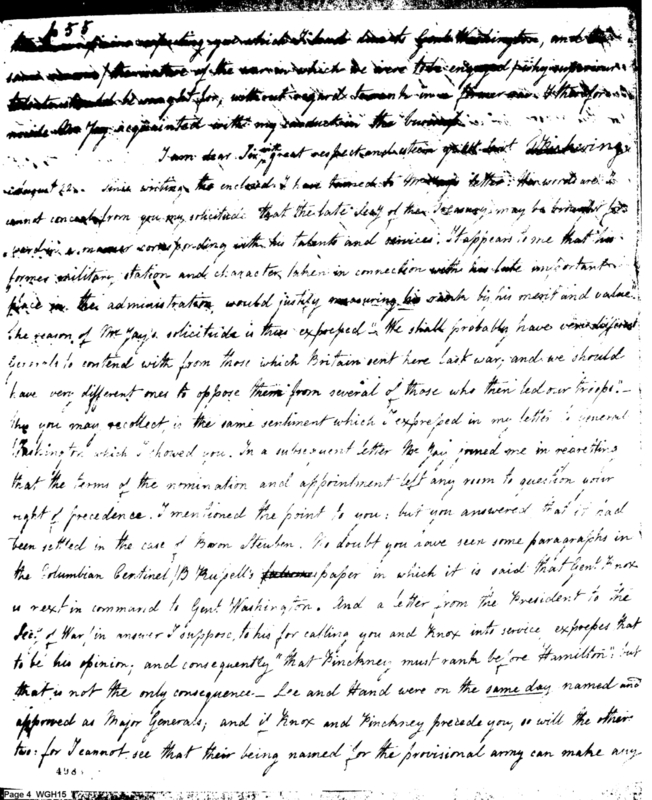 p 55
respecting you which I had sent to Genl Washington, and the
same / the nature of the war in which we were to be engaged
to be sought for, without regard to rank in a former war. I therefore
made Mr Jay acquainted with my conduct in the business.
I am dear Sir with great respect and esteem
August 22. Since writing the enclosed I have turned to Mr letter. Her words are "I
cannot conceal from you my solicitude that the late Secy of the Treasury may be brought for
ward in a manner corresponding with his talents and services. It appears to me that his
former military station and character, taken in connection with his late important
place in the administration would justify measuring his rank by his merit and value".
The reason of Mr Jay's solicitude is thus expressed "We shall probably have very different
Generals to contend with from those which Britain sent here last war; and we should
have very different ones to oppose them from several of those who then led our troops." —
This you may recollect is the same sentiment which I expressed in my letter to General
Washington which I showed you. In a subsequent letter Mr Jay joined me in regretting
that the terms of the nomination and appointment left any room to question your
right of precedence. I mentioned the point to you: but you answered that it had
been settled in the case of Baron Steuben. No doubt you have seen some paragraphs in
the Columbian Centinel / B Russell's paper in which it is said that Genl Knox
is next in command to Genl Washington. And a letter from the President to the
Secy of War / in answer I suppose, to his for calling you and Knox into service, expresses that
to be his opinion; and consequently "that Pinckney must rank before Hamilton": but
that is not the only consequence — Lee and Hand were on the same day named and
approved as Major Generals; and if Knox and Pinckney precede you, so will the other
two: for I cannot see that their being named for the provisional army can make any
498
Page 4 WGH15